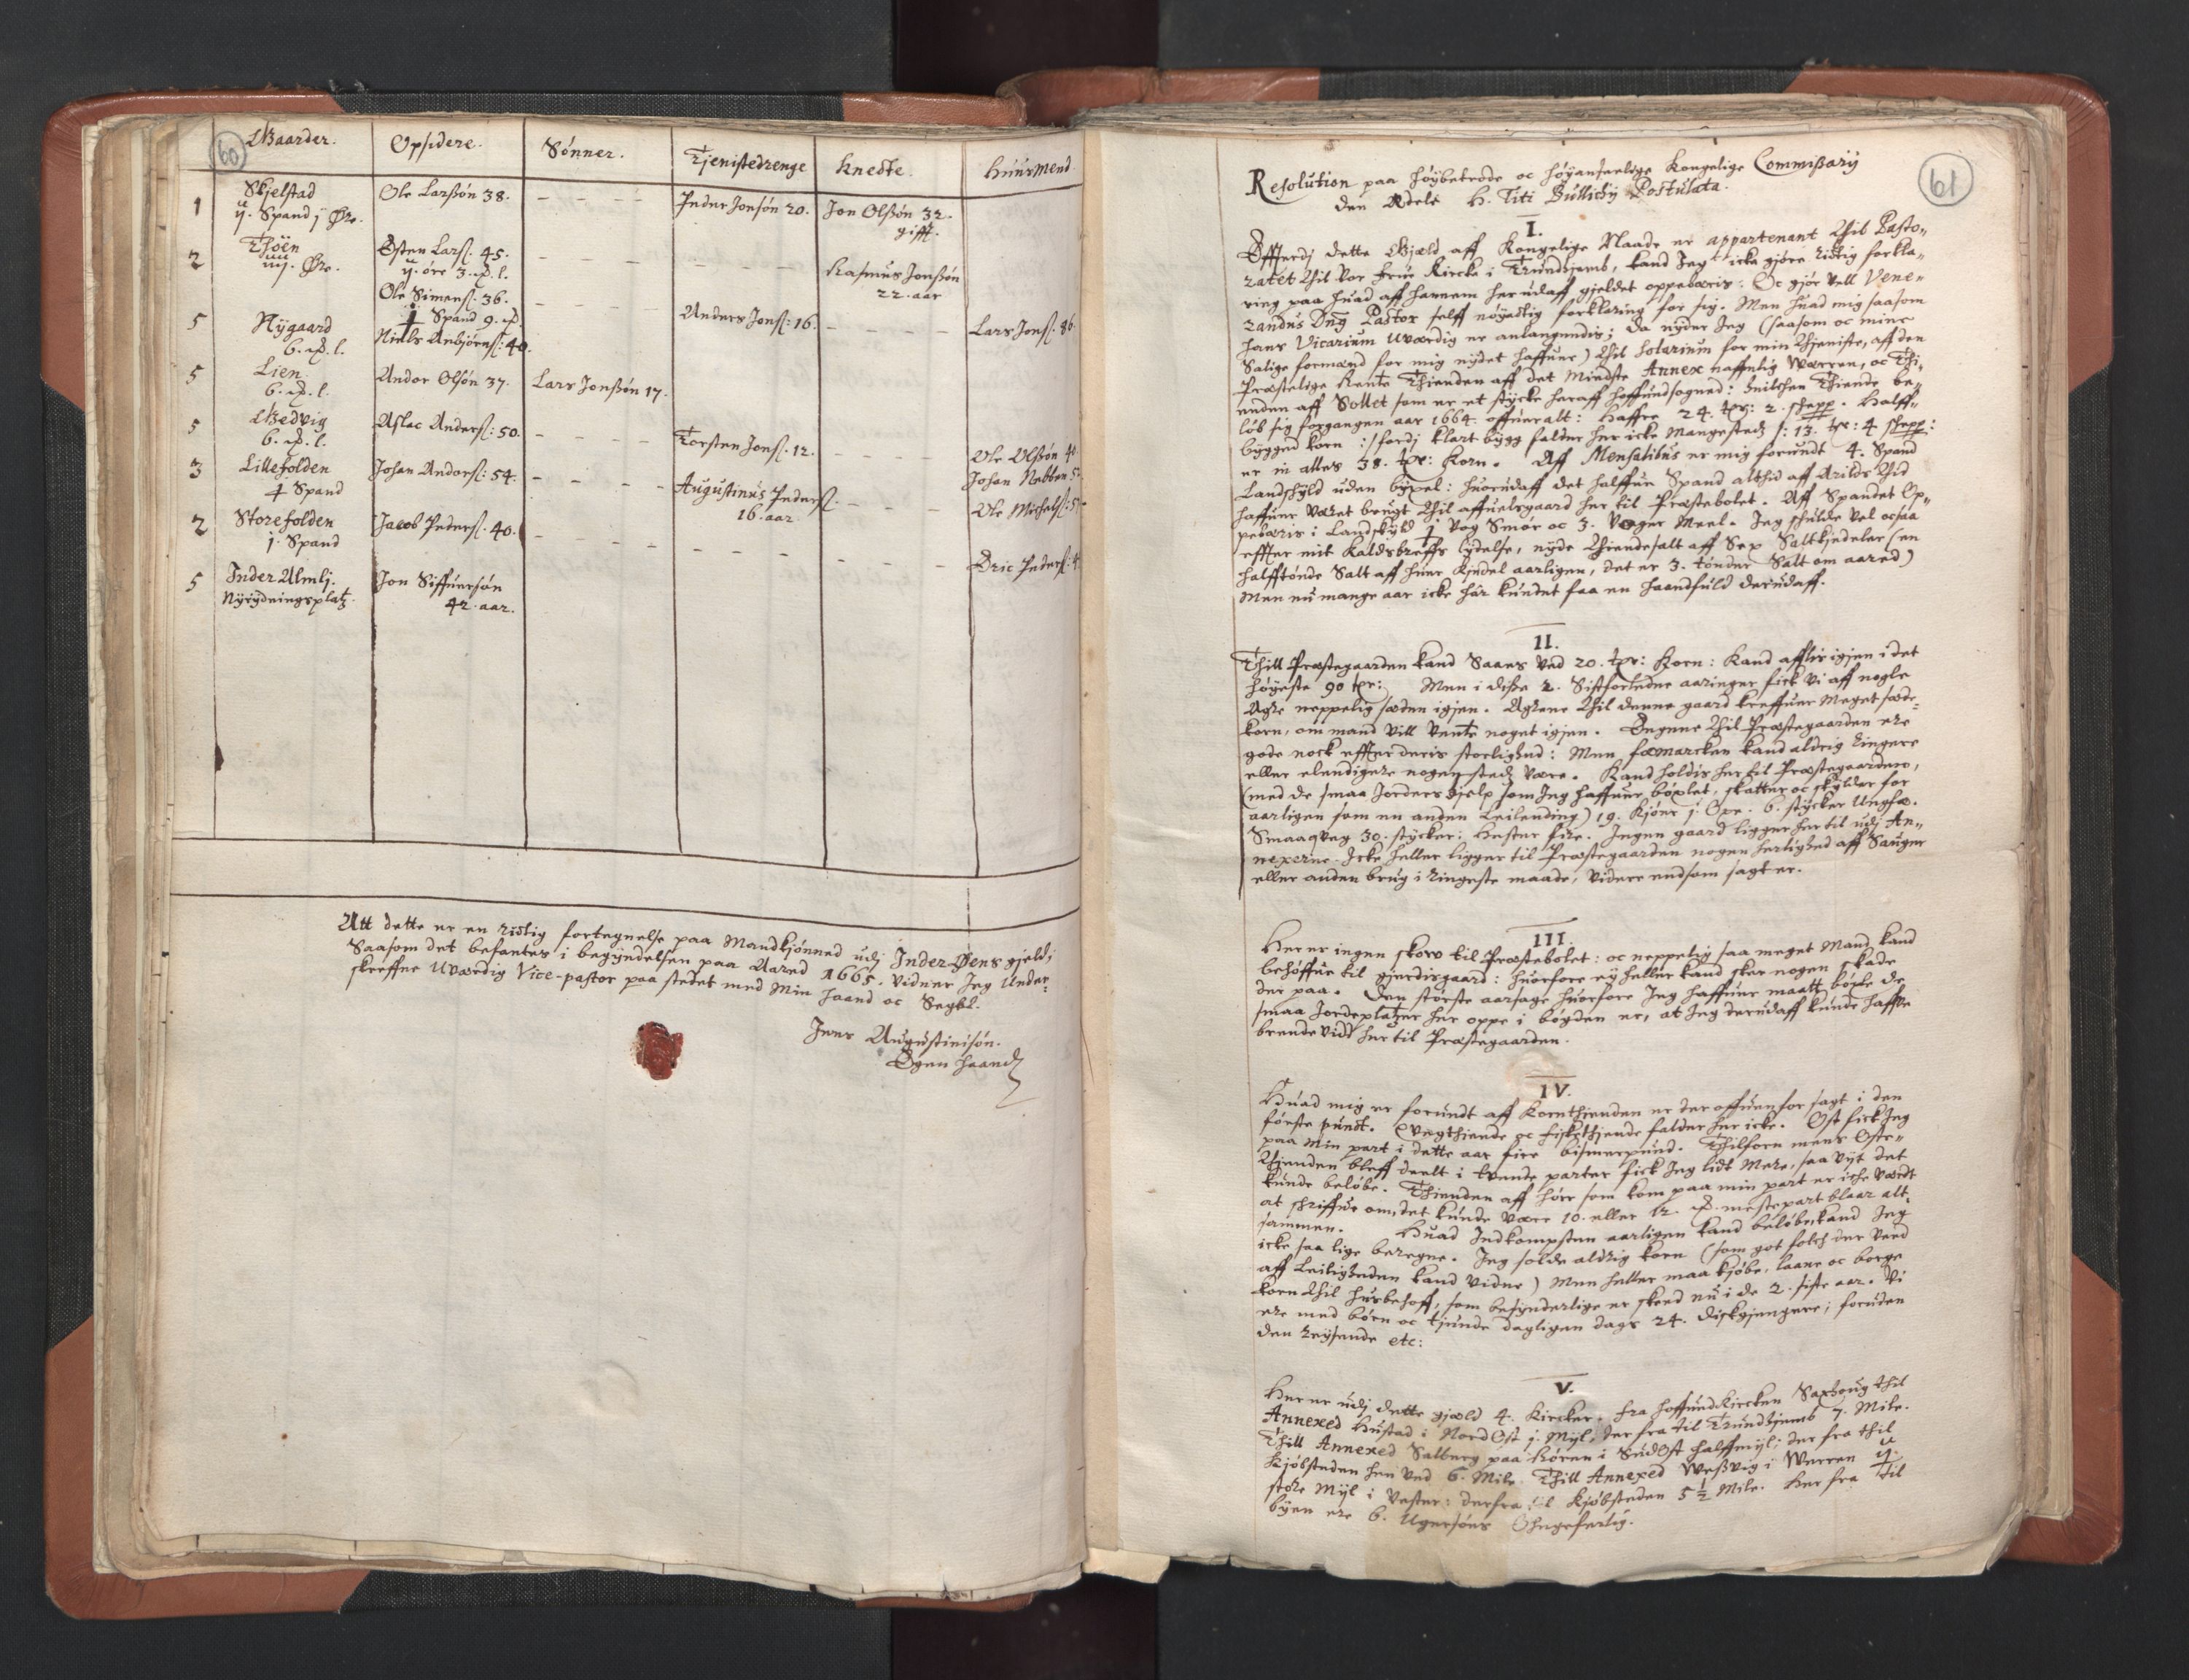 60
Gaarder. Opsidere. Sønner. Tjenistedrenge Knecte. Huusmend
1 Skjelstad Ole Larssøn 38. - - - - Peder Jonsøn 20. Jon Olssøn 32.
ij. Spand j Øre. gifft.
2 Thøen Østen Larss: 45. - - - - - - - - Rasmus Jonssøn
iiij. Øre. ij. øre 3. ℔. l. 22. aar
Ole Simenss: 36. - - - -
½ Spand 9. ℔.
5 Nygaard Niels Anbjørnss: 40. Anders Jonss: 16. - - - - - Lars Jonss: 86.
6. ℔. l.
5 Lien Andor Olsøn 37. Lars Jonssøn 17.
6. ℔. l.
5 Gedvig Aslac Anderss: 50. - - - - Torsten Jonss: 12. - - - - Ole Olssøn 40
6. ℔. l.
3 Lillefolden Johan Andorss: 54. - - - - Augustinus Pederss: - - - - Johan Nebben 5
½ Spand 16. aar
2 Storefolden Jacob Pederss. 40. Ole Michelss: 5
j. Spand
5 Inder Almlj. Jon Siffuersøn - - - - Eric Pederss: 4
Nyrydningsplatz. 42. aar.
Att dette er en rictig fortegnelse paa Mandkjønned udj Inder Øens gjeld,
Saasom det befantes i begyndelsen paa Aared 1665. vidner Jeg Under-
skreffne Uværdig Vice-pastor paa stedet med Min haand oc Segel.
Jens Augustinisøn.
Egen haand
61
Resolution paa høybetrode oc høyanseelige Kongelige Commissarij
den Edele H. Titi Bullichij Postulata.
I.
Effterdj dette Gjæld aff Kongelige Naade er appartenant Thil Pasto-
ratet Thil Vor Frue Kircke i Trundhjemb, kand Jeg icke gjøre rictig forkla-
ring paa huad aff hannem her udaff gjeldet oppebæris: Oc gjør vell Vene-
randus Dnus Pastor selff nøyactig forklaring for sig. Men huad mig saasom
hans Vicarium Uværdig er anlangendis; da nyder Jeg (saasom oc mine
Salige formænd for mig nydet haffuer) Thil Solarium for min Thjeniste, aff den
Præstelige Rente Thienden aff det Mindste Annex naffnlig Werren, oc Thi-
enden aff Sollet som er et stycke heraff hoffuedsogned: huilchen Thiende be-
løb sig forgangen aar 1664. offueralt: Haffre 24. tpr: 2. schepp. Halff-
bygged korn :/ fordj klart bygg falder her icke Mangestedz /: 13. tpr: 4 schepp:
er in alles 38. tpr: Korn. Aff Mensalibus er mig forundt 4. Spand
Landschyld uden byxel: huorudaff det halffue Spand altid aff Arilds Tid
haffuer været brugt Thil affuelsgaard her til Præstebolet. Aff Spandet Op-
pebæris i Landskyld ½ Vog Smør oc 3. Voger Meel. Jeg schulde vel ocsaa
effter mit Kaldsbreffs lydelse, nyde Thiendesalt aff Sex Saltkjedeler (en
halfftønde Salt aff huer Kjedel aarligen, det er 3. tønder Salt om aared)
Men nu mange aar icke hâr kundet faa en haandfuld derudaff.
II.
Thill Præstegaarden kand Saaes ved 20. tpr: Korn: Kand afflis igjen i det
høyeste 90 tpr: Men i disse 2. Sistforledne aaringer fick vi aff nogle
Agre neppelig sæden igjen. Agrene Thil denne gaard kreffuer Meget sæde-
korn, om mand vill vente noget igjen. Engene Thil Præstegaarden ere
gode nock effter deris storlighed: Men fæmarcken kand aldrig ringere
eller elendigere nogenstedz være. Kand holdis her til Præstegaarden,
(med de smaa Jorders hjelp som Jeg haffuer bøxlet, skatter oc skylder for
aarligen som en anden Leilending) 19. Kjøer j Oxe. 6. stycker Ungfæ.
Smaaqveg 30. stycker: Hester fire. Ingen gaard ligger her til udj An-
nexerne. Icke heller ligger til Præstegaarden nogen herlighed aff Sauger
eller anden brug i ringeste maade, videre end som sagt er.
III.
Her er ingen skow til Præstebolet: oc neppelig saa meget Mand kand
behøffue til gjerdisgaard: huorfore ey heller kand skee nogen skade
der paa. Den største aarsage huorfore Jeg haffuer maatt böxle de
smaa Jordeplatzer her oppe i bøgden er, at Jeg derudaff kunde haffue
brendevid her til Præstegaarden.
IV.
Huad mig er forundt aff Kornthienden er der offuenfor sagt i den
første punct. Qvegthiende oc fiskethiende falder her icke. Ost fick Jeg
paa Min part i dette aar fire bismerpund. Thilforn mens Oste-
Thienden bleff deelt i tvende parter fick Jeg lidt Mere, saa vijt det
kunde beløbe. Thienden aff hørr som kom paa min part er icke værdt
at schriffue om, det kunde være 10. eller 12. ℔. mestepart blaar alt-
sammen. Huad Indkompsten aarligen kand beløbe, kand Jeg
icke saa lige beregne. Jeg solde aldrig korn (som got folch der veed
aff Leiligheden kand vidne) Men heller maa kjøbe, laane oc borge
korn Thil husbehoff, som besynderlige er skeed nu i de 2. siste aar. Vi
ere med børn oc tjunde dagligen dags 24. diskgjengere; foruden
den reysende etc:
V.
Her er udj dette gjæld 4. Kircker. Fra Hoffuedkircken Saxhoug thil
Annexed Hustad i NordOst j. Myl, der fra til Trundhjemb 7. Mile.
Thill Annexed Salberg paa Røren i SudOst halffmyl; der fra thil
Kjøbsteden hen ved 6. Mile. Thill Annexed Wessvig i Werren ij.
store Myl i Vester: derfra til Kjøbsteden 5 ½ Mile. Her fra til
byen ere 6. Ugersøes Ohngeferlig.